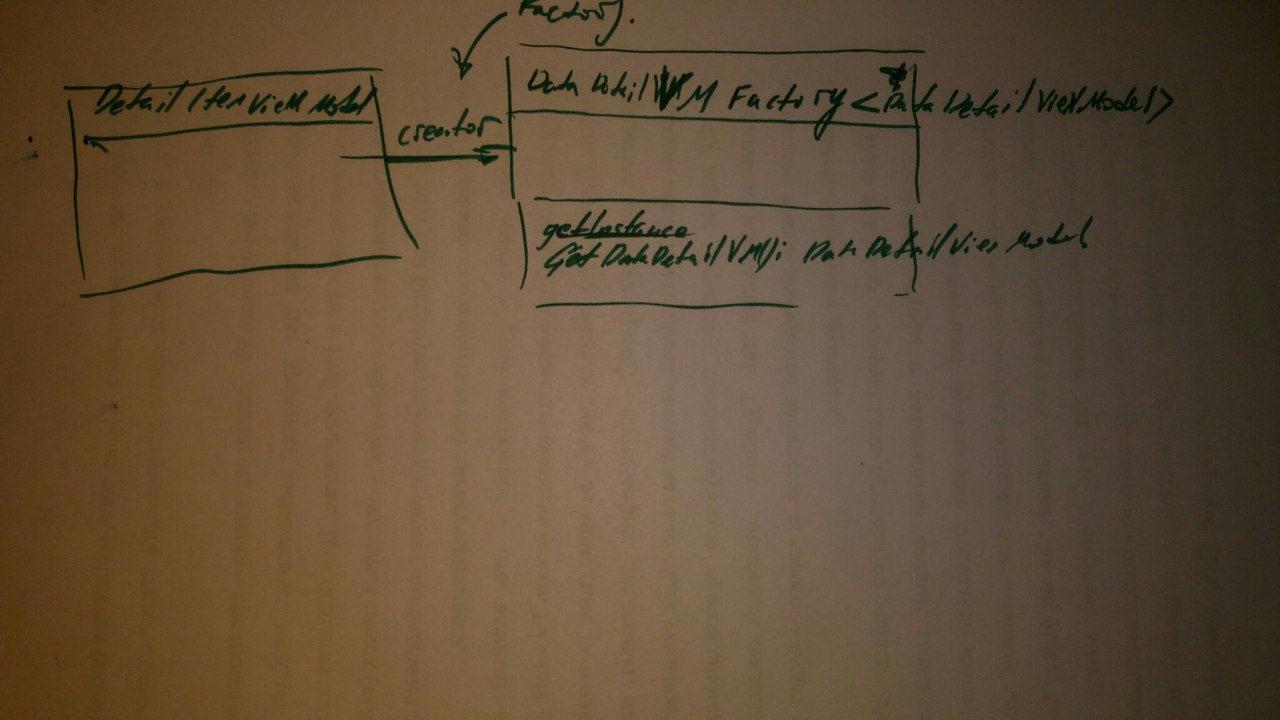 Factory.
Detail Item ViewModel
creator
Data Detail VM Factory <DataDetailViewModel>
getInstance
Get DataDetailVM(): DataDetailViewModel